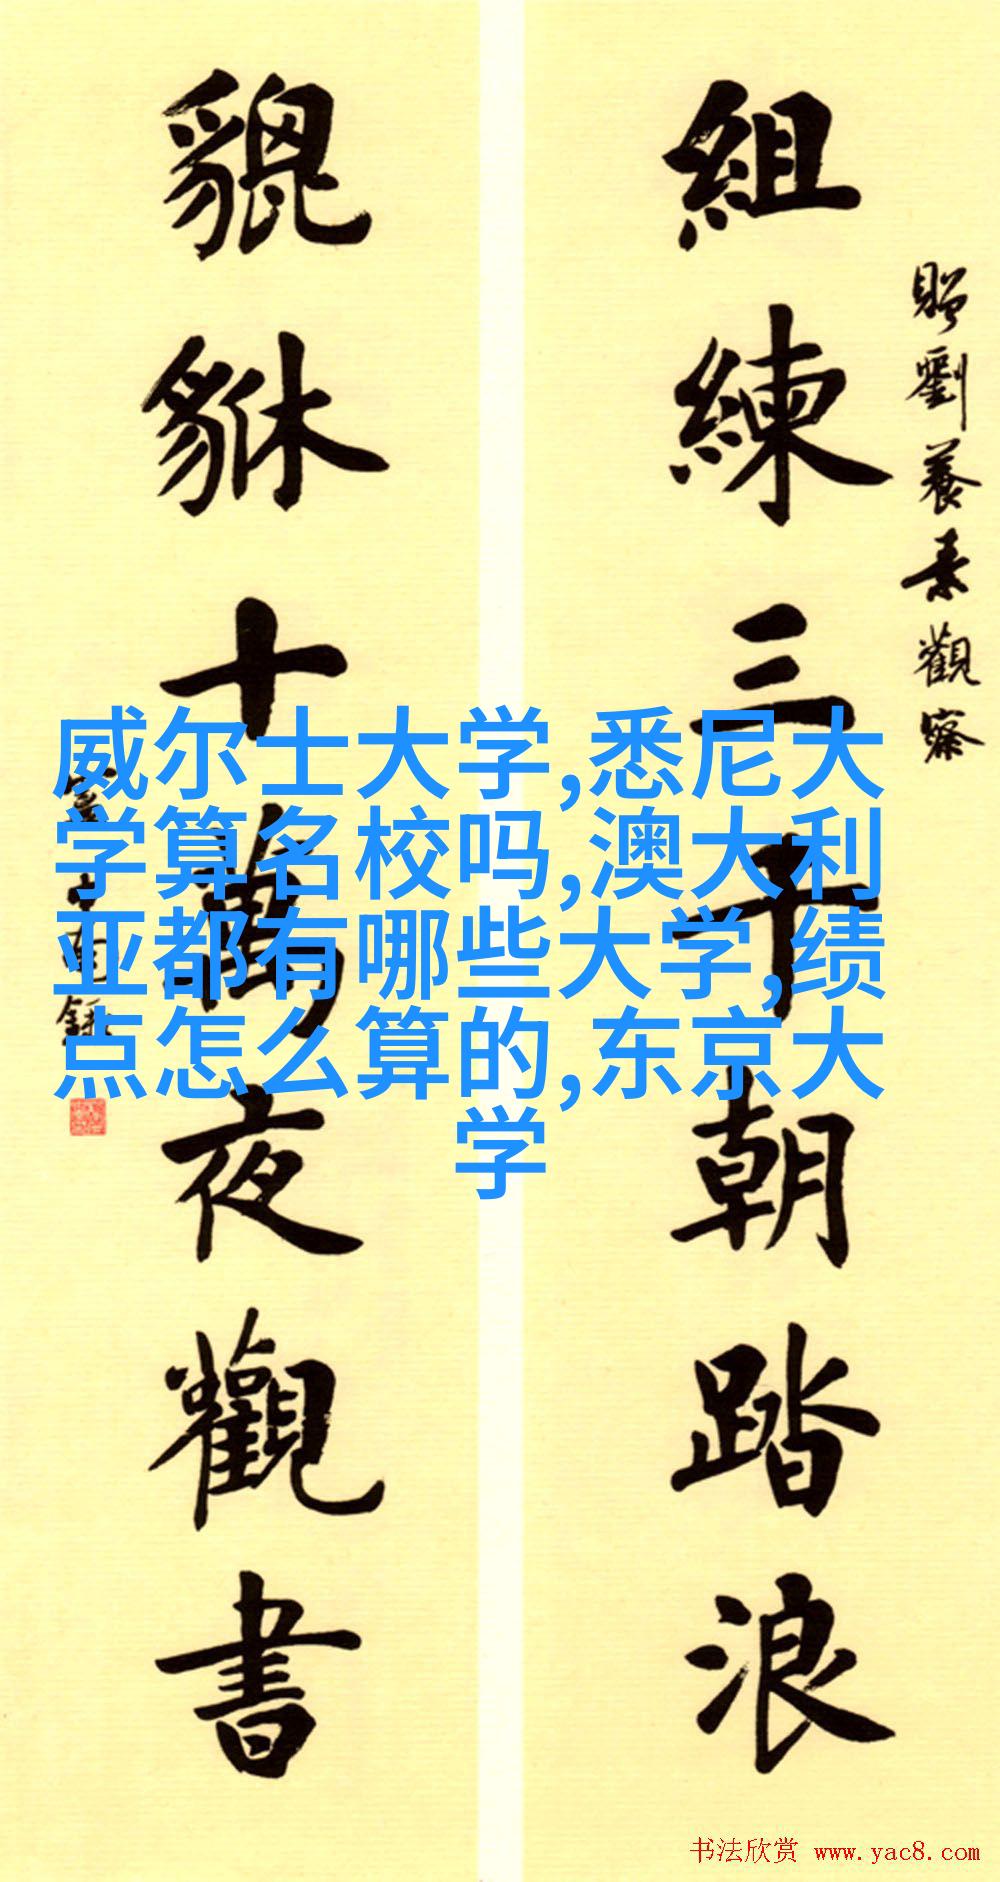 組練三千朝踏浪
貔貅十萬夜觀書
贈劉養素觀察
威尔士大学,悉尼大
学算名校吗,澳大利
亚都有哪些大学,绩
点怎么算的,东京大
学
书法欣赏 www.yac8.com